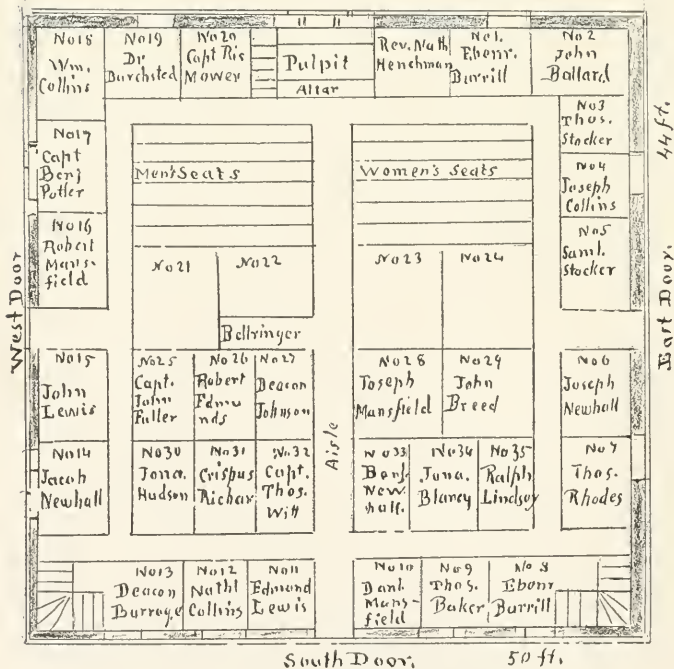 No18
Wm.
Collins
No19
Dr
Burchsted
No20
Capt Ris
Mower
Pulpit
Altar
Rev. Nath
Henchman
No1.
Ebenr.
Burrill
No2
John
Ballard
No3
Thos.
Stocker
No4
Joseph
Collins
No5
Saml.
Stocker
44 ft.
East Door.
No17
Capt
Benj
Potter
No16
Robert
Mans-
field
West Door
Men's Seats
Women's Seats
No21
No22
Bellringer
No23
No24
No15
John
Lewis
No25
Capt.
John
Fuller
No26
Robert
Edmu
nds
No27
Deacon
Johnson
Aisle
No28
Joseph
Mansfield
No29
John
Breed
No6
Joseph
Newhall
No14
Jacob
Newhall
No30
Jona.
Hudson
No31
Crispus
Richar
No.32
Capt.
Thos.
Witt
No33
Benj.
New
hall.
No34
Jona.
Blaney
No35
Ralph
Lindsey
No7
Thos.
Rhodes
No13
Deacon
Burrage
No12
Nathl
Collins
No11
Edmund
Lewis
No10
Danl.
Mans-
field
No9
Thos.
Baker
No8
Ebenr
Burrill
South Door.
50 ft.